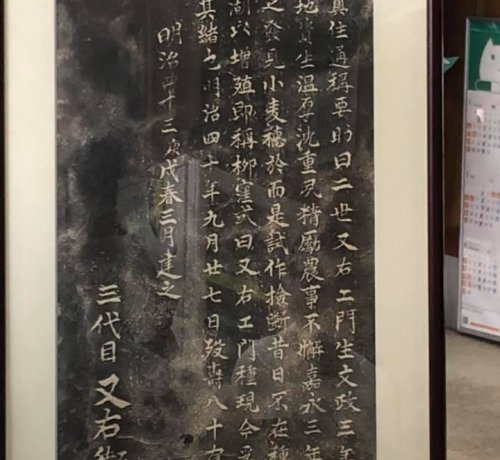 住通稱要助曰二世又右エ門生文政三年
地資生温厚沈重夙精勵農事不懈嘉永三年
之發見小麦穂於而是試作撿斷昔日不在種
以増殖即稱柳窪或曰又右エ門種現今
其緒也明治四十年九月廿七日歿壽八十有
明治四十三庚戌春三月建之
三代目又右衛